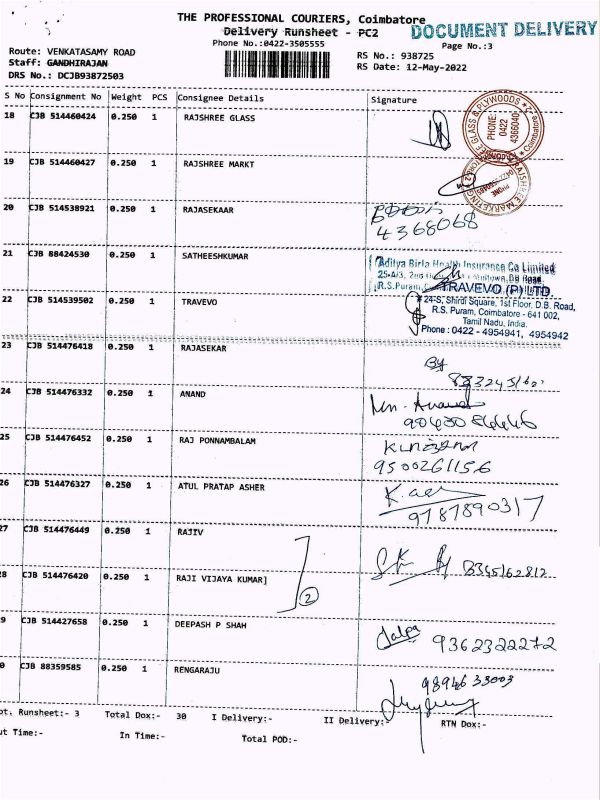 THE PROFESSIONAL COURIERS, Coimbatore
DOCUMENT DELIVERY
Delivery Runsheet - PC2
Phone No.:0422-3505555
Page No.:3
Route: VENKATASAMY ROAD
RS No.: 938725
Staff: GANDHIRAJAN
RS Date: 12-May-2022
DRS No.: DCJB93872503
S No Consignment No Weight PCS Consignee Details Signature
18 CJB 514460424 0.250 1 RAJSHREE GLASS
GLASS & PLYWOODS * Coimbatore
PHONE: 0422 4366040
19 CJB 514460427 0.250 1 RAJSHREE MARKT
RAJSHREE MARKETING
PHONE
20 CJB 514538921 0.250 1 RAJASEKAAR
4368068
21 CJB 88424530 0.250 1 SATHEESHKUMAR
Aditya Birla Health Insurance Co Limited
25-A/3, DB Road,
R.S.Puram,
22 CJB 514539502 0.250 1 TRAVEVO
TRAVEVO (P) LTD
24-S, Shirdi Square, 1st Floor, D.B. Road,
R.S. Puram, Coimbatore - 641 002,
Tamil Nadu, India.
Phone : 0422 - 4954941, 4954942
23 CJB 514476418 0.250 1 RAJASEKAR
By
24 CJB 514476332 0.250 1 ANAND
Anand
25 CJB 514476452 0.250 1 RAJ PONNAMBALAM
9500261156
26 CJB 514476327 0.250 1 ATUL PRATAP ASHER
9787890317
27 CJB 514476449 0.250 1 RAJIV
28 CJB 514476420 0.250 1 RAJI VIJAYA KUMAR]
2
9 CJB 514427658 0.250 1 DEEPASH P SHAH
9362322272
0 CJB 88359585 0.250 1 RENGARAJU
9894633003
ot. Runsheet:- 3 Total Dox:- 30 I Delivery:- II Delivery:- RTN Dox:-
ut Time:- In Time:- Total POD:-